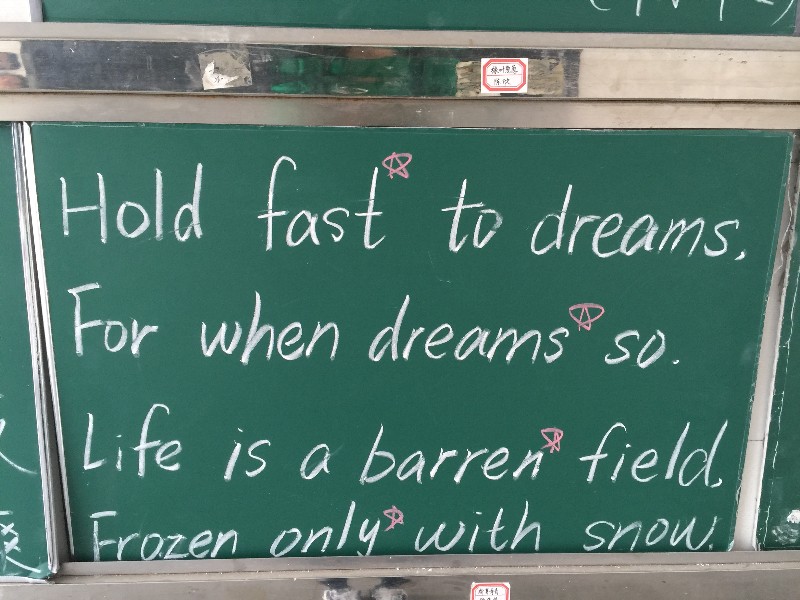 Hold fast to dreams,
For when dreams so.
Life is a barren field,
Frozen only with snow.